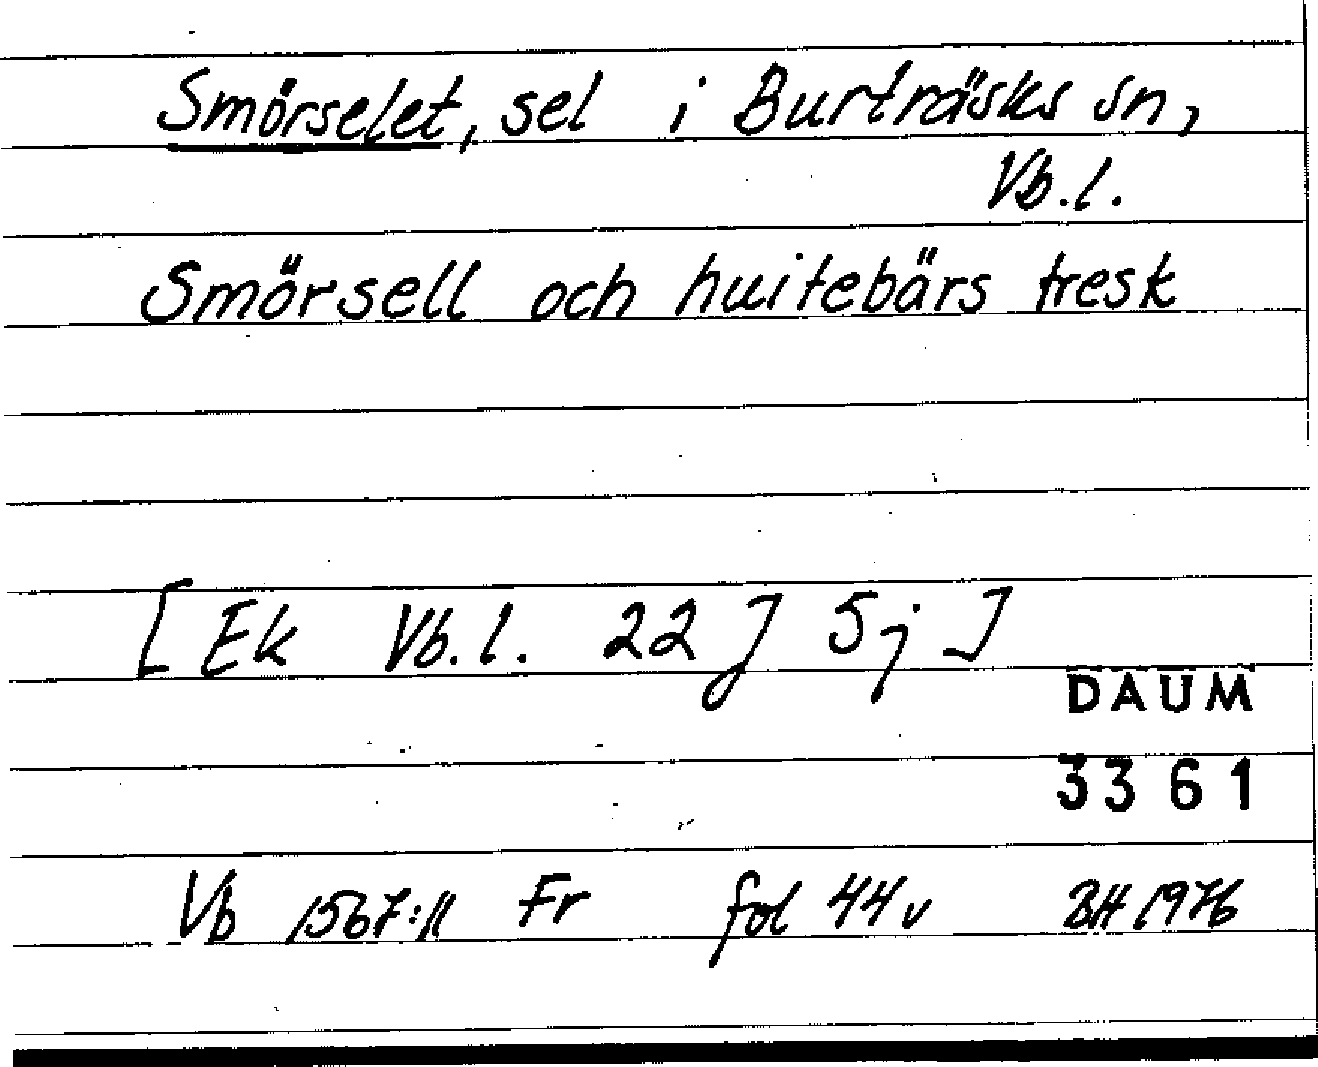 Smörselet, sel i Burträsks sn,
Vb.l.
Smörsell och huitebärs tresk
[Ek Vb.l. 22 J 5j]
DAUM
3361
Vb 1567:11 Fr fol 44 v BH 1976